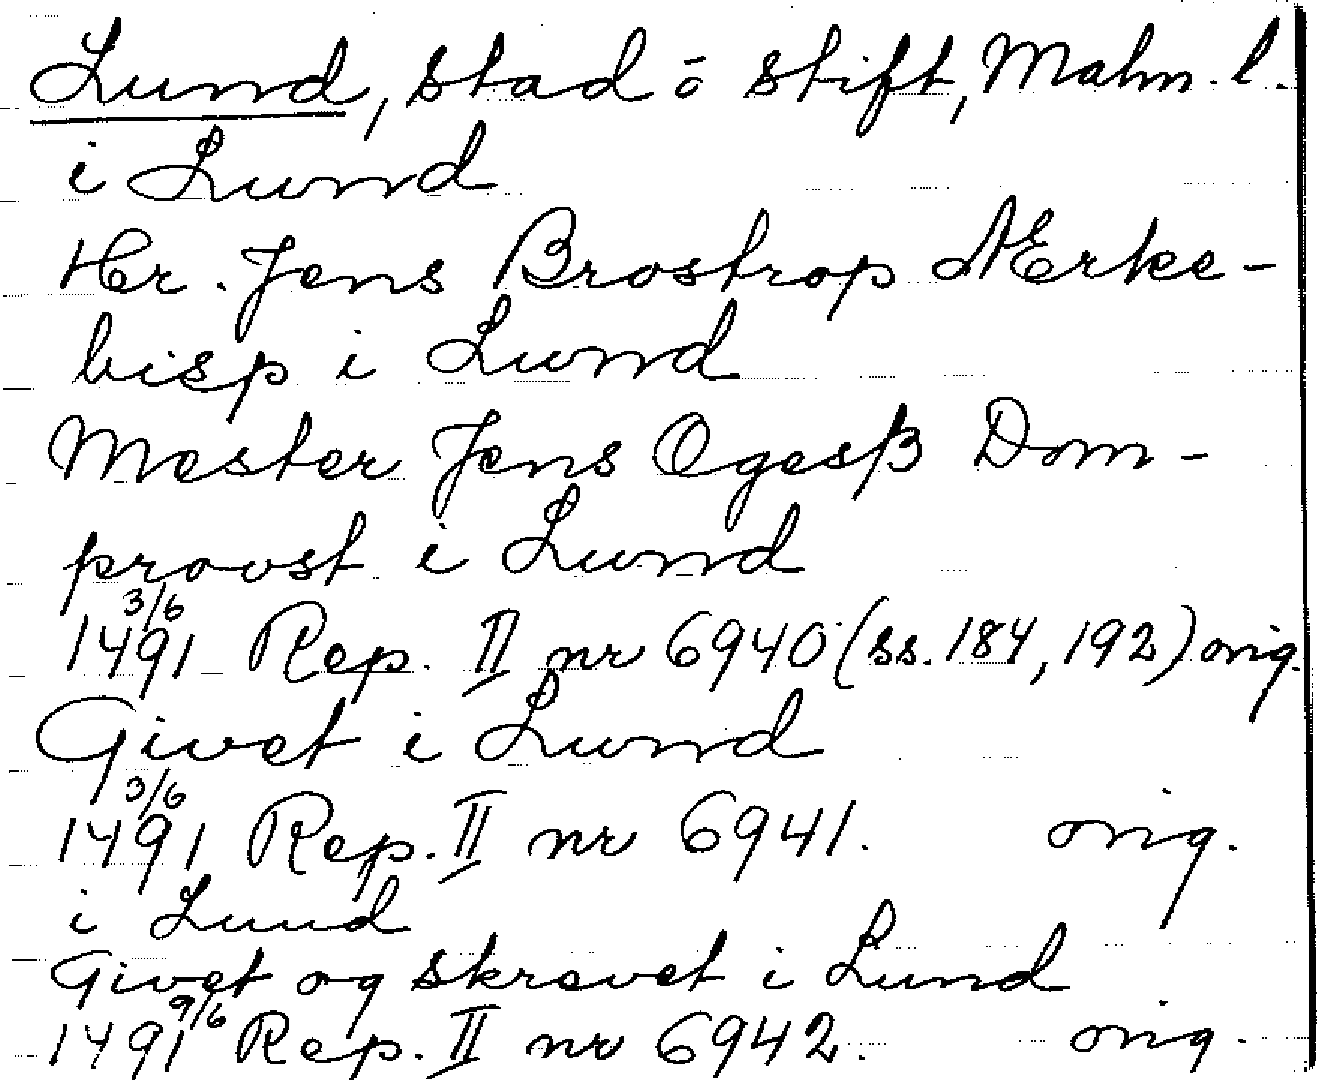 Lund, stad o stift, Malm. l.
i Lund
Hr. Jens Brostrop AErke-
bisp i Lund
Mester Jens Ogesß Dom-
provst i Lund
1491 3/6 Rep. II nr 6940 (ss. 184, 192) orig.
Givet i Lund
1491 3/6 Rep. II nr 6941. orig.
i Lund
Givet og skrevet i Lund
1491 9/6 Rep. II nr 6942. orig.